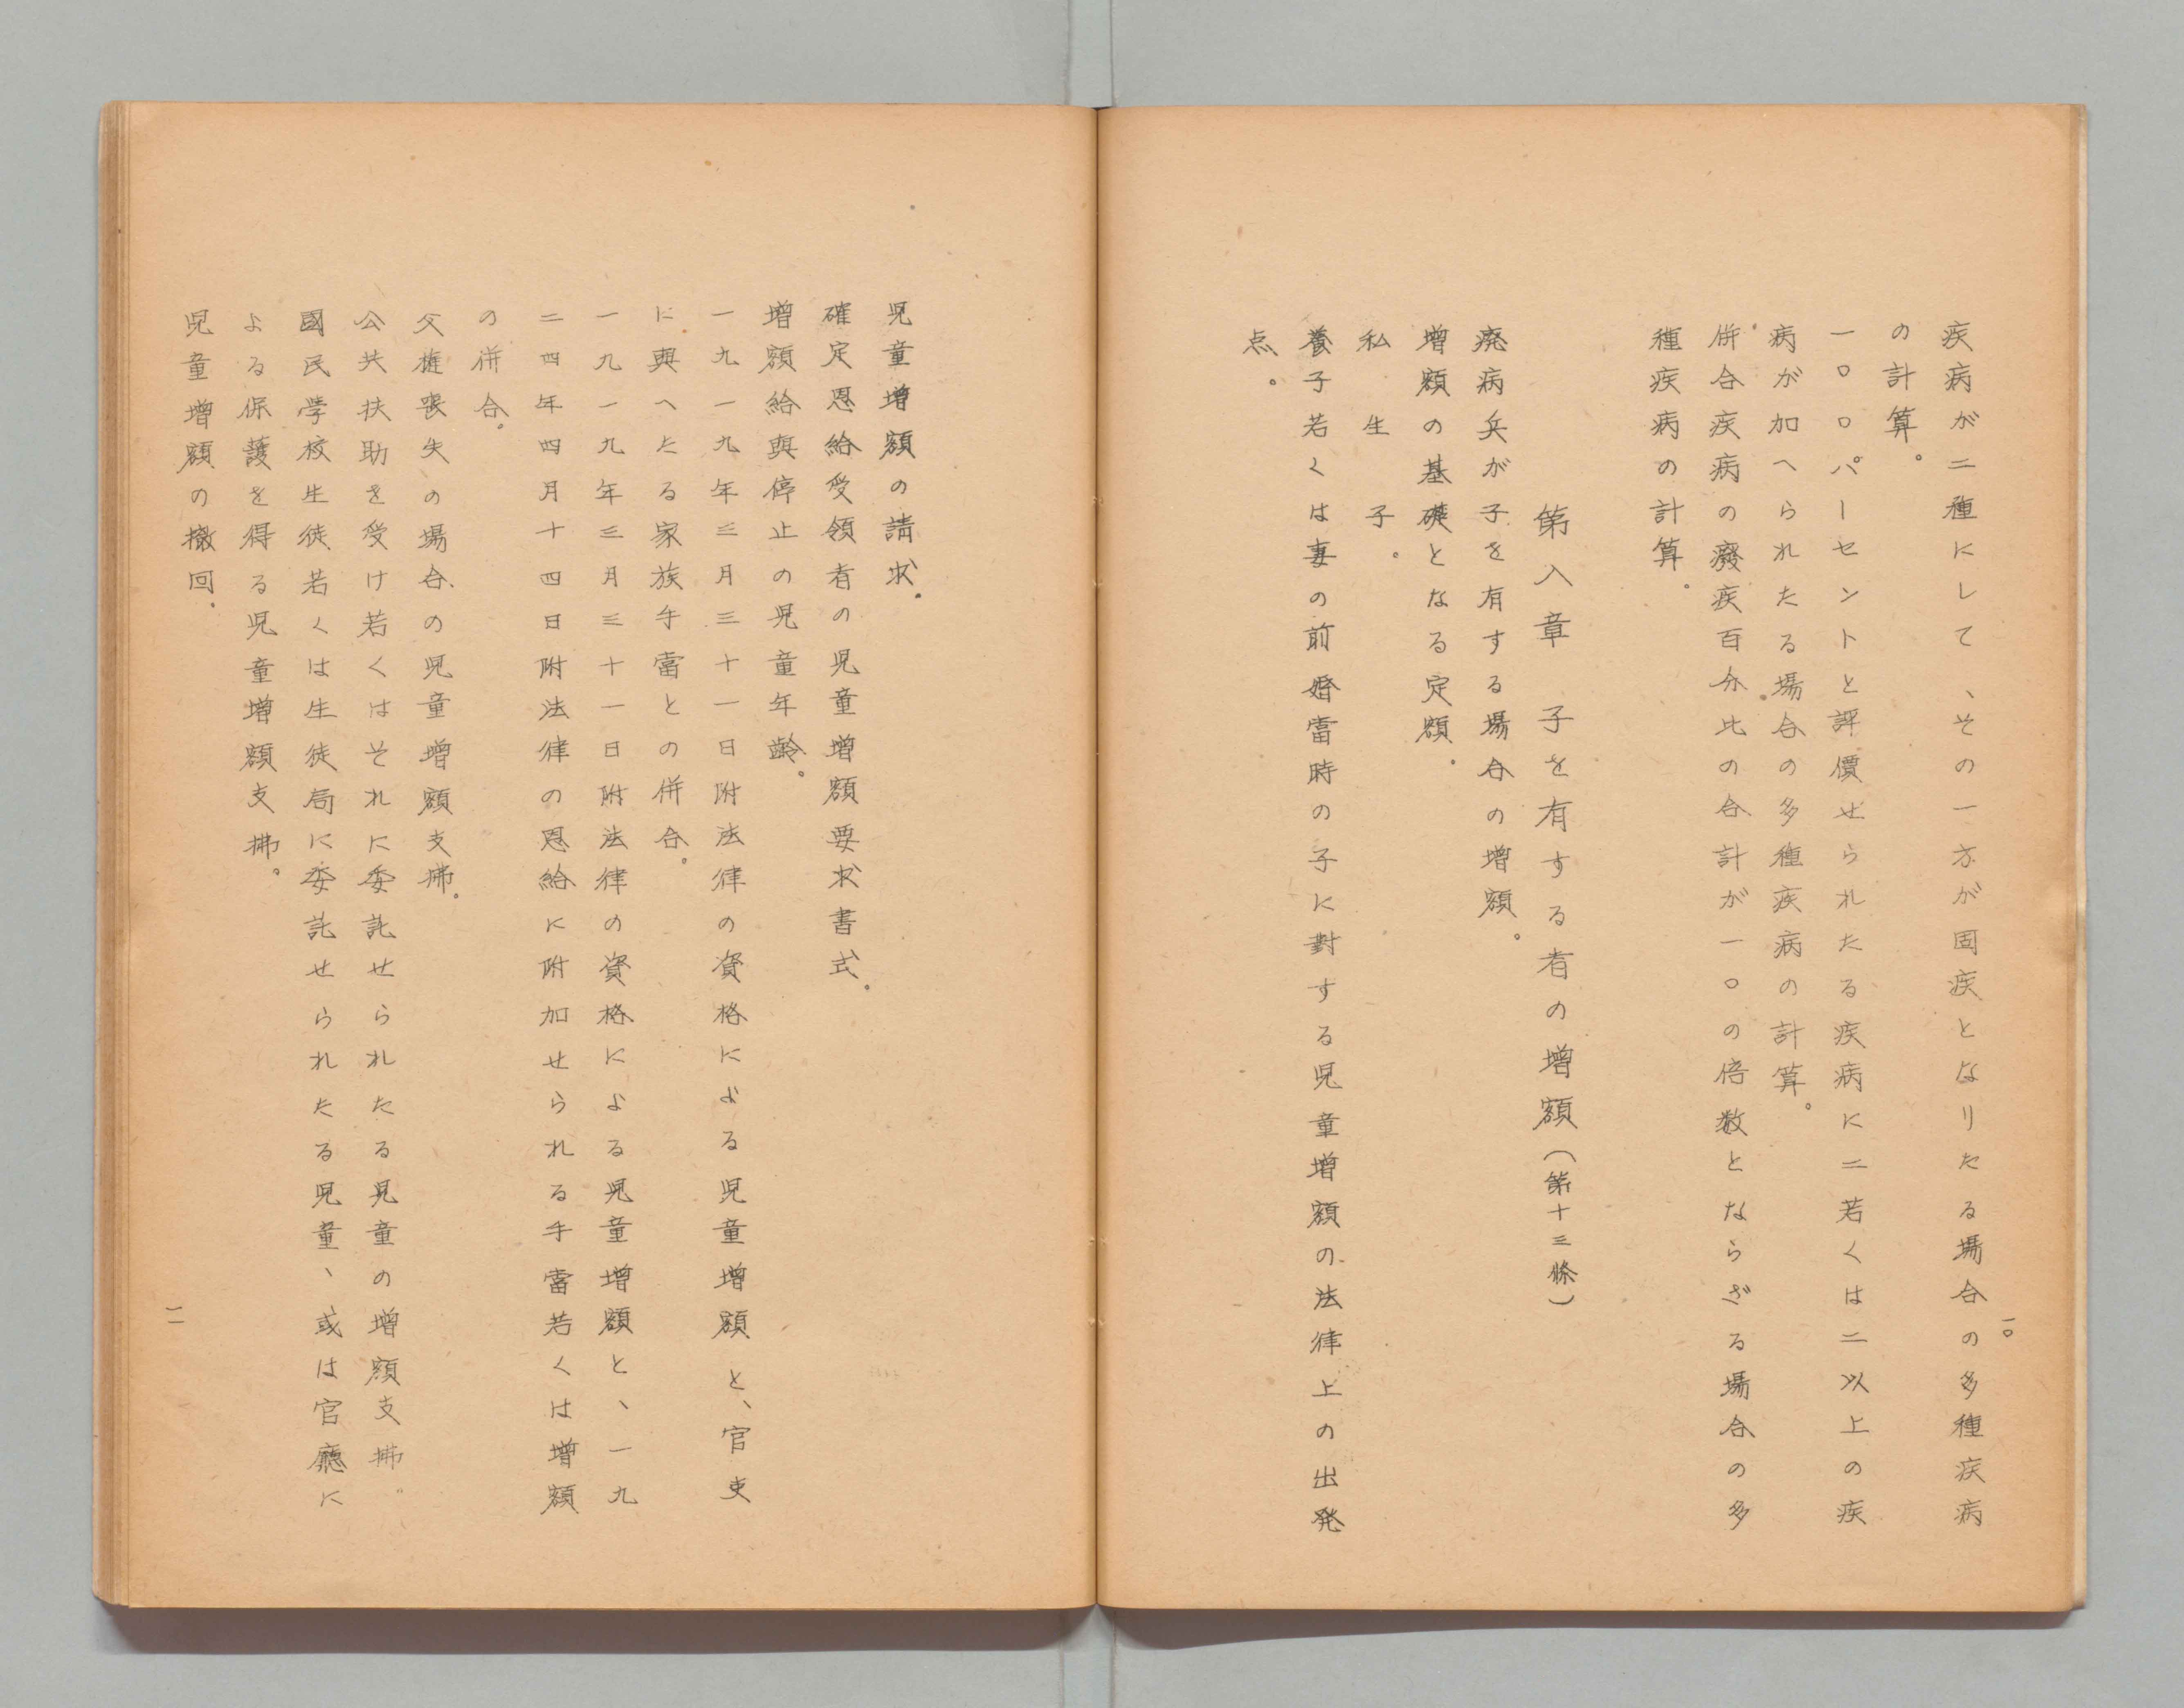 疾病が二種にして、その一方が固疾となりたる場合の多種疾病
の計算。
一〇〇パーセントと評價せられたる疾病に二若くは二以上の疾
病が加へられたる場合の多種疾病の計算。
併合疾病の癈疾百分比の合計が一〇の倍数とならざる場合の多
種疾病の計算。
第八章 子を有する者の増額(第十三條)
廃病兵が子を有する場合の増額。
増額の基礎となる定額。
私生子。
養子若くは妻の前婚當時の子に對する児童増額の法律上の出発
点。
一〇
児童増額の請求。
確定恩給受領者の児童増額要求書式。
増額給與停止の児童年齢。
一九一九年三月三十一日附法律の資格による児童増額と、官吏
に與へたる家族手當との併合。
一九一九年三月三十一日附法律の資格による児童増額と、一九
二四年四月十四日附法律の恩給に附加せられる手當若くは増額
の併合。
父権喪失の場合の児童増額支拂。
公共扶助を受け若くはそれに委託せられたる児童の増額支拂。
國民學校生徒若くは生徒局に委託せられたる児童、或は官廳に
よる保護を得る児童増額支拂。
児童増額の撤回。
一一